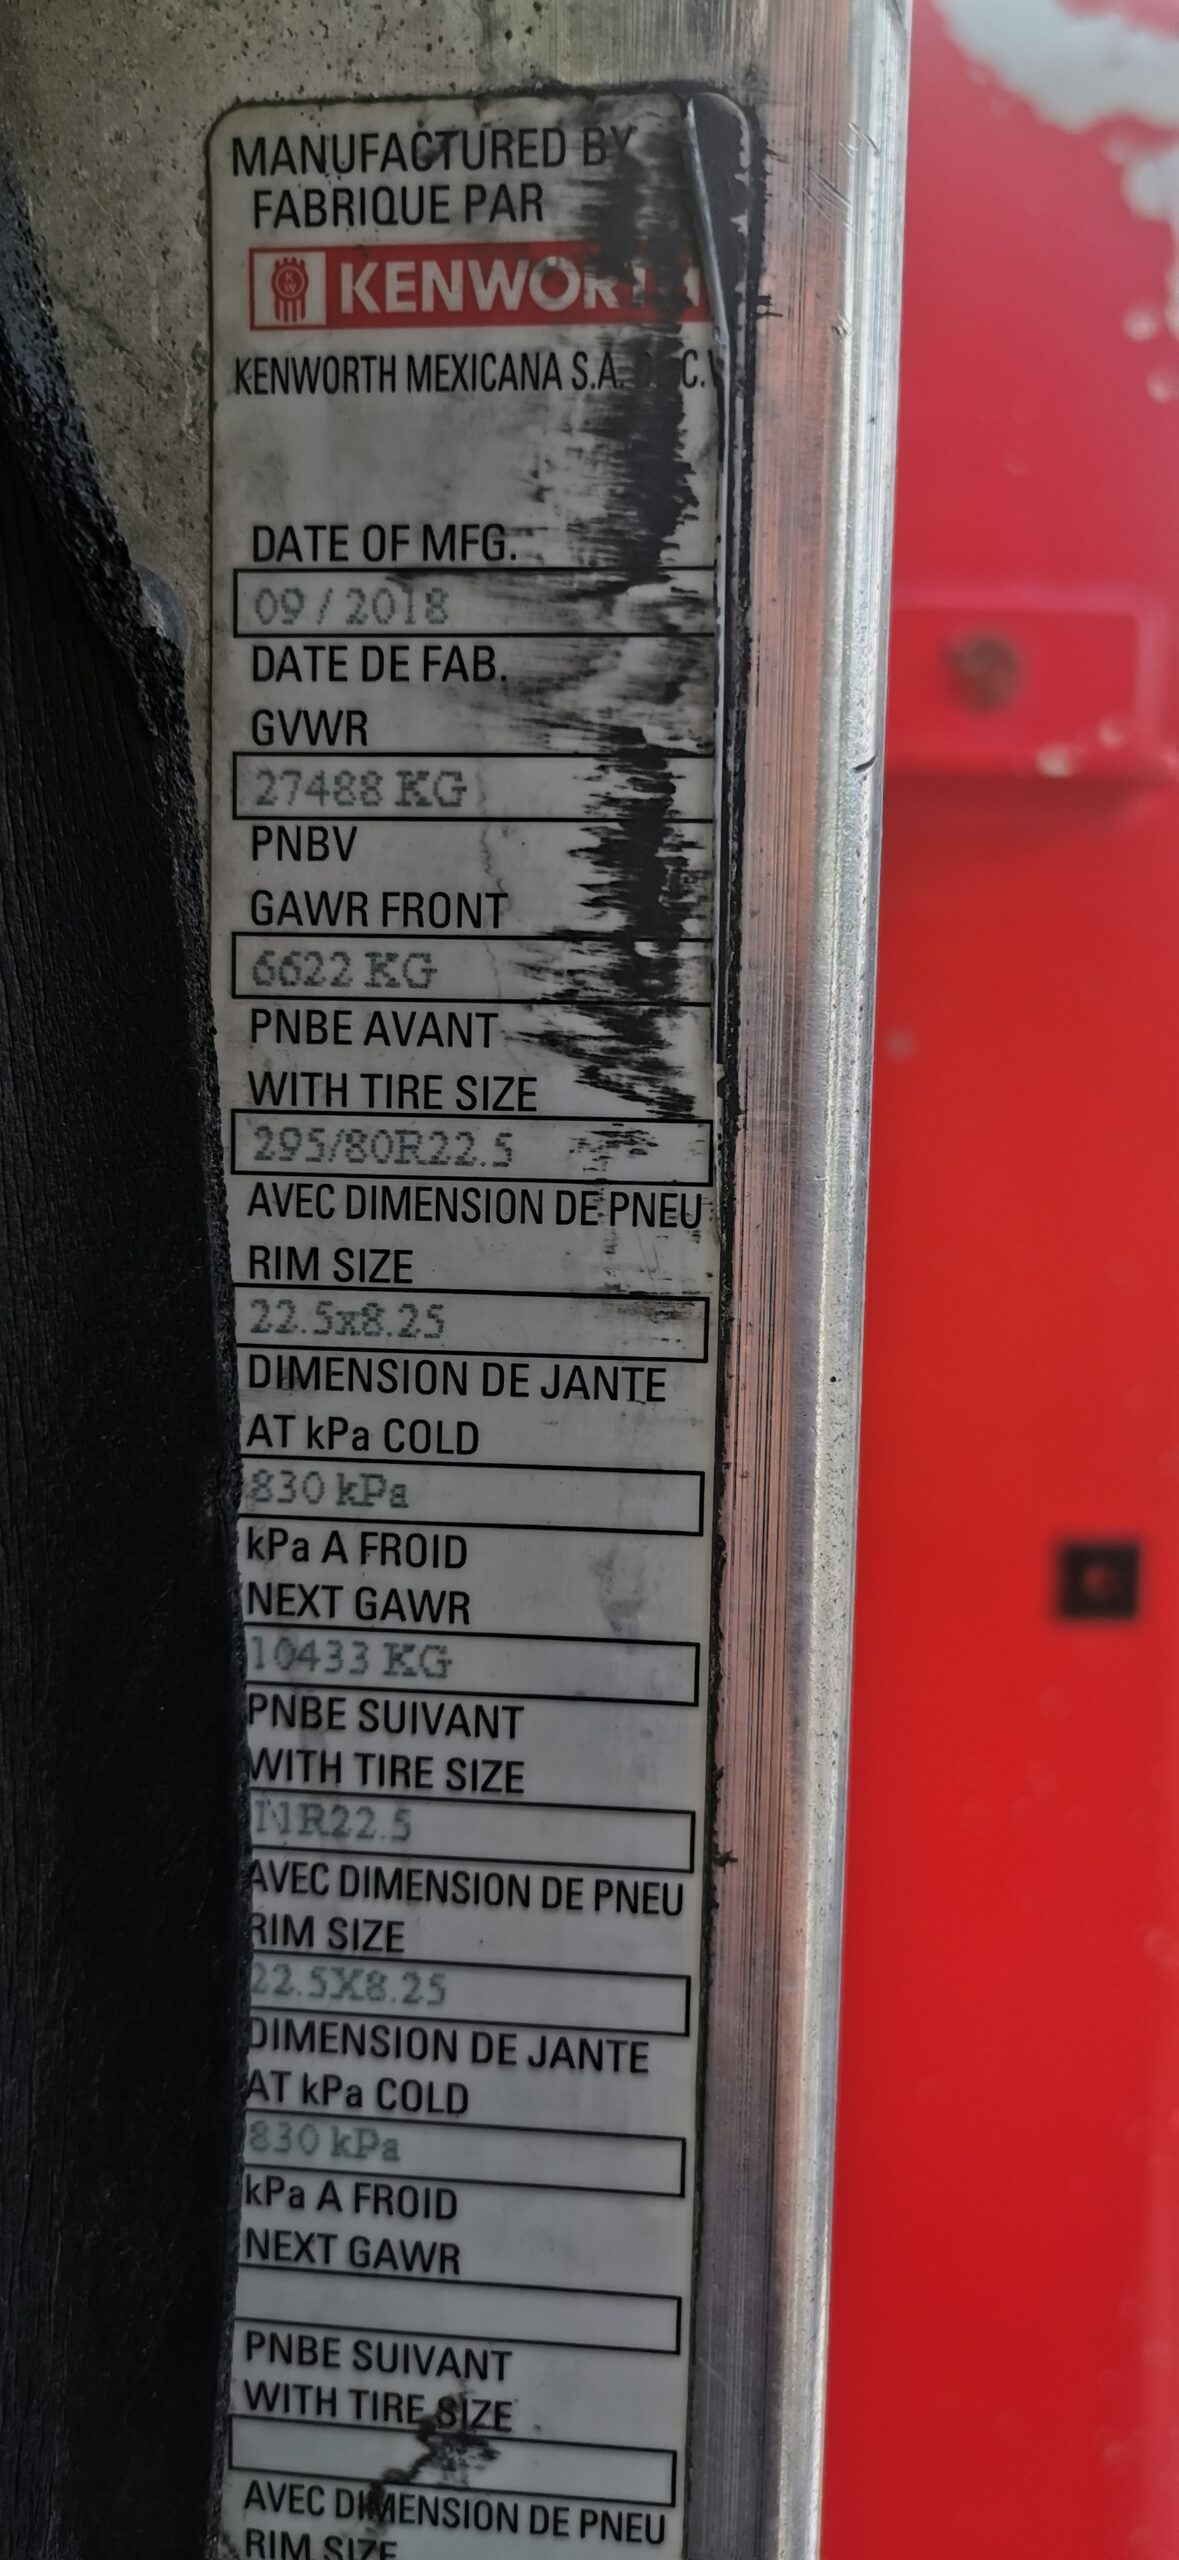 MANUFACTURED BY
FABRIQUE PAR
KENWORTH
KENWORTH MEXICANA S.A. C.V
DATE OF MFG.
09/2018
DATE DE FAB.
GVWR
27488 KG
PNBV
GAWR FRONT
6622 KG
PNBE AVANT
WITH TIRE SIZE
295/80R22.5
AVEC DIMENSION DE PNEU
RIM SIZE
22.5x8.25
DIMENSION DE JANTE
AT kPa COLD
830 kPa
kPa A FROID
NEXT GAWR
10433 KG
PNBE SUIVANT
WITH TIRE SIZE
11R22.5
AVEC DIMENSION DE PNEU
RIM SIZE
22.5X8.25
DIMENSION DE JANTE
AT kPa COLD
830 kPa
kPa A FROID
NEXT GAWR
PNBE SUIVANT
WITH TIRE SIZE
AVEC DIMENSION DE PNEU
RIM SIZE